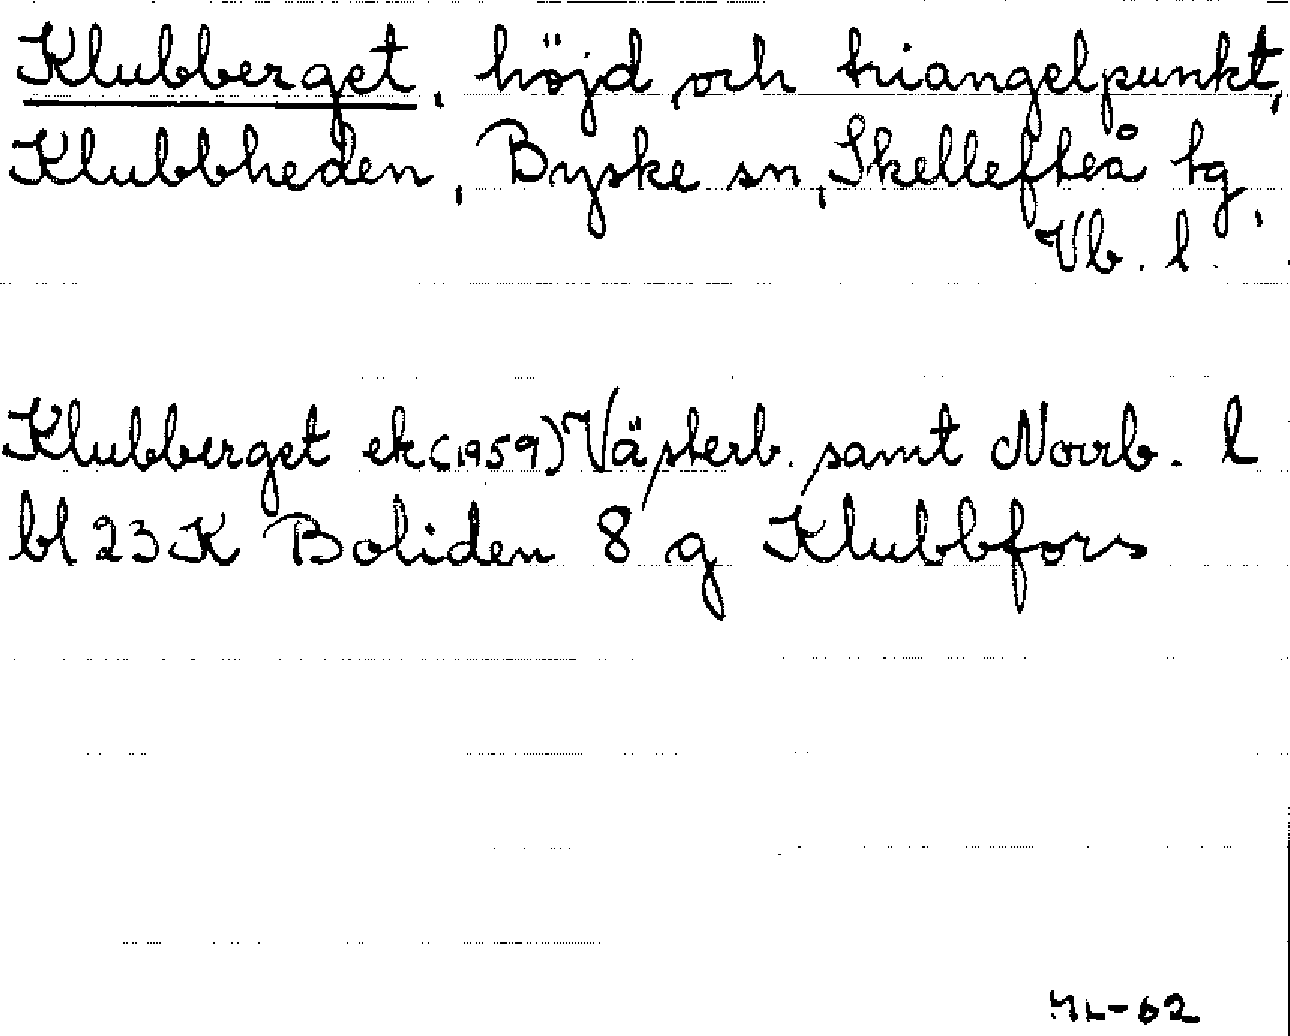 Klubberget, höjd och triangelpunkt,
Klubbheden, Byske sn, Skellefteå tg,
Vb. l.
Klubberget ek (1959) Västerb. samt Norrb. l
bl 23 K Boliden 8 g Klubbfors
ML-62